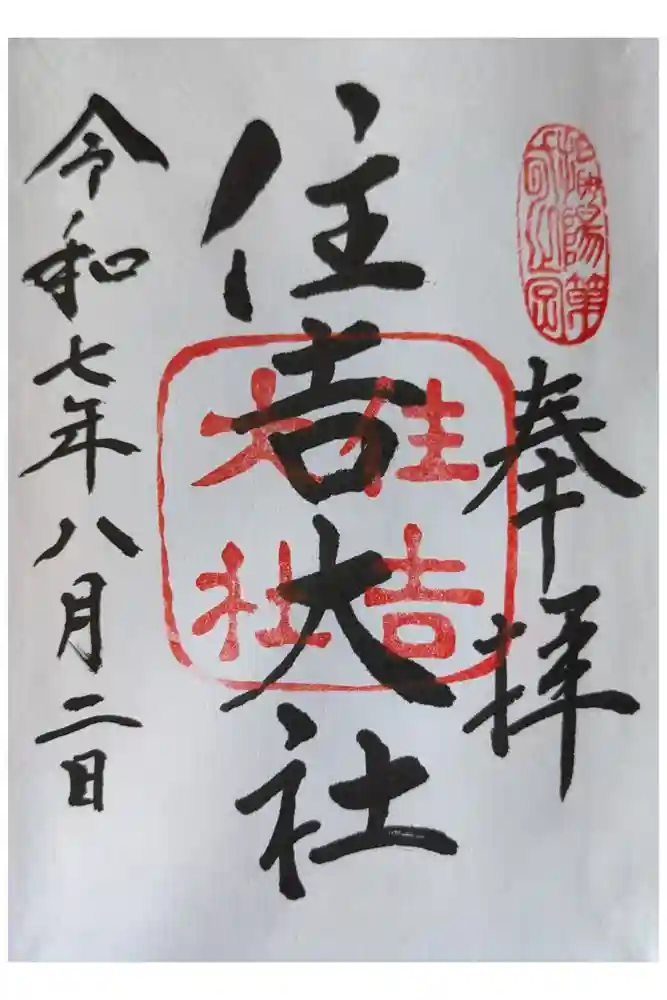 奉拝
住吉大社
住吉
大社
令和七年八月二日